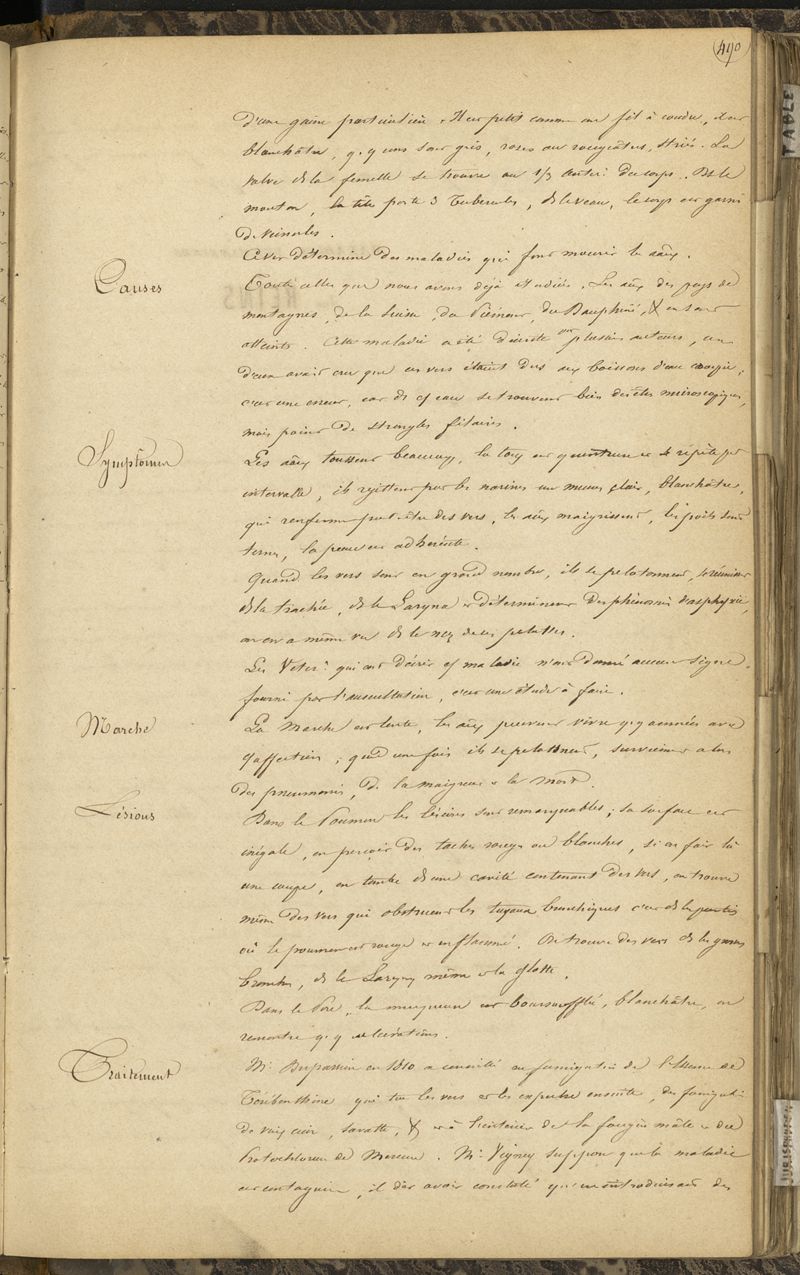 490
d'une gaine particulière. Il est petit comme un fil à coudre, il est
blanchâtre, q.q uns sont gris, rosés ou rougeâtres, striés. La
valve de la femelle se trouve au 1/3 antér: du corps. Ds le
mouton, la tête porte 3 Tubercules, ds le veau, le corps est garni
de
Ce ver détermine des maladies qui font mourir les aux.
Causes
Toutes celles que nous avons déjà étudiées. Les aux des pays de
montagnes, de la Suisse, du Piémont, du Dauphiné, & en sont
atteints. Cette maladie a été décrite par plusieurs auteurs, un
d'eux avait cru que ces vers étaient dus aux boissons d'eau croupie,
c'est une erreur, car ds cs eaux se trouvent bien des êtres microscopiques,
mais point de strongles filaires.
Symptômes
Les aux toussent beaucoup, la toux est quinteuse et se répète par
intervalle, ils rejettent par les narines un mucus clair, blanchâtre,
qui renferme peut être des vers, les aux maigrissent, les poils sont
ternes, la peau est adhérente.
Quand les vers sont en grand nombre, ils se pelotonnent, se réunissent
ds la trachée, ds le Larynx et déterminent des phénomènes d'asphyxie,
on en a même vu ds le nez de ces pelottes.
Les Vétér.s qui ont décrit cs maladie n'ont donné aucun signe
fourni par l'auscultation, c'est une étude à faire.
Marche
La Marche est lente, les aux peuvent vivre q.q années avec
cs affection; qud une fois ils se pelotonnent, surviennent alors
des pneumonies, de la maigreur & la mort.
Lésions
Dans le Poumon les lésions sont remarquables; sa surface est
inégale, on perçoit des taches rouges ou blanches, si on fait là
une coupe, on tombe ds une cavité contenant des vers, on trouve
même des vers qui obstruent les tuyaux bronchiques c'est ds les parties
où le poumon est rouge et enflammé. On trouve des vers ds les grosses
bronches, ds le Larynx même & la glotte.
Dans le la muqueuse est boursoufflée, blanchâtre, on
rencontre q.q ulcérations.
Traitement
Mr. en 1810 a conseillé en fumigation de l'Essence de
Térébenthine qui tue les vers et les expectore ensuite, des fumigat:
de vieux cuir, savatte, & et à l'intérieur de la fougère mâle & du
Protochlorure de Mercure. Mr. Vigney suppose que la maladie
est contagieuse, il dit avoir constaté qu'en introduisant des
TABLE
JURISPRUDEN